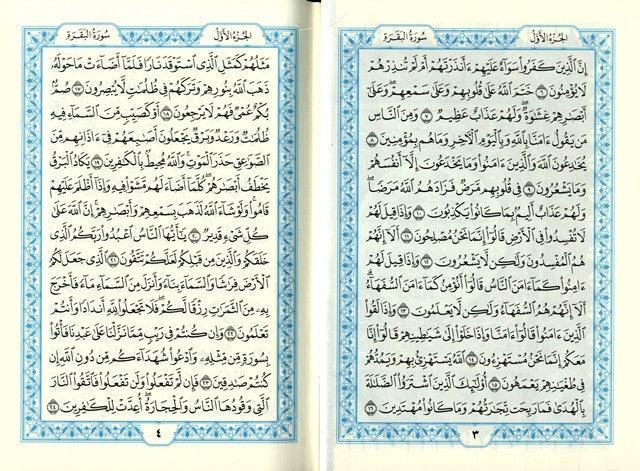 الجزء الأول
سورة البقرة
إن الذين كفروا سواء عليهم ءأنذرتهم أم لم تنذرهم
لا يؤمنون ٦ ختم الله على قلوبهم وعلى سمعهم وعلى
أبصارهم غشاوة ولهم عذاب عظيم ٧ ومن الناس
من يقول ءامنا بالله وباليوم الآخر وما هم بمؤمنين ٨
يخادعون الله والذين ءامنوا وما يخدعون إلا أنفسهم
وما يشعرون ٩ في قلوبهم مرض فزادهم الله مرضا
ولهم عذاب أليم بما كانوا يكذبون ١٠ وإذا قيل لهم
لا تفسدوا في الأرض قالوا إنما نحن مصلحون ١١ ألا إنهم
هم المفسدون ولكن لا يشعرون ١٢ وإذا قيل لهم
ءامنوا كما ءامن الناس قالوا أنؤمن كما ءامن السفهاء
ألا إنهم هم السفهاء ولكن لا يعلمون ١٣ وإذا لقوا
الذين ءامنوا قالوا ءامنا وإذا خلوا إلى شياطينهم قالوا إنا
معكم إنما نحن مستهزءون ١٤ الله يستهزئ بهم ويمدهم
في طغيانهم يعمهون ١٥ أولئك الذين اشتروا الضلالة
بالهدى فما ربحت تجارتهم وما كانوا مهتدين ١٦
٣
الجزء الأول
سورة البقرة
مثلهم كمثل الذي استوقد نارا فلما أضاءت ما حوله
ذهب الله بنورهم وتركهم في ظلمات لا يبصرون ١٧ صم
بكم عمي فهم لا يرجعون ١٨ أو كصيب من السماء فيه
ظلمات ورعد وبرق يجعلون أصابعهم في ءاذانهم من
الصواعق حذر الموت والله محيط بالكافرين ١٩ يكاد البرق
يخطف أبصارهم كلما أضاء لهم مشوا فيه وإذا أظلم عليهم
قاموا ولو شاء الله لذهب بسمعهم وأبصارهم إن الله على
كل شيء قدير ٢٠ يأيها الناس اعبدوا ربكم الذي
خلقكم والذين من قبلكم لعلكم تتقون ٢١ الذي جعل لكم
الأرض فراشا والسماء بناء وأنزل من السماء ماء فأخرج
به من الثمرات رزقا لكم فلا تجعلوا لله أندادا وأنتم
تعلمون ٢٢ وإن كنتم في ريب مما نزلنا على عبدنا فأتوا
بسورة من مثله وادعوا شهداءكم من دون الله إن
كنتم صادقين ٢٣ فإن لم تفعلوا ولن تفعلوا فاتقوا النار
التي وقودها الناس والحجارة أعدت للكافرين ٢٤
٤